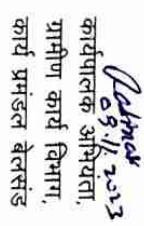 09.11.2023
कार्यपालक अभियंता,
ग्रामीण कार्य विभाग,
कार्य प्रमंडल बेलसंड